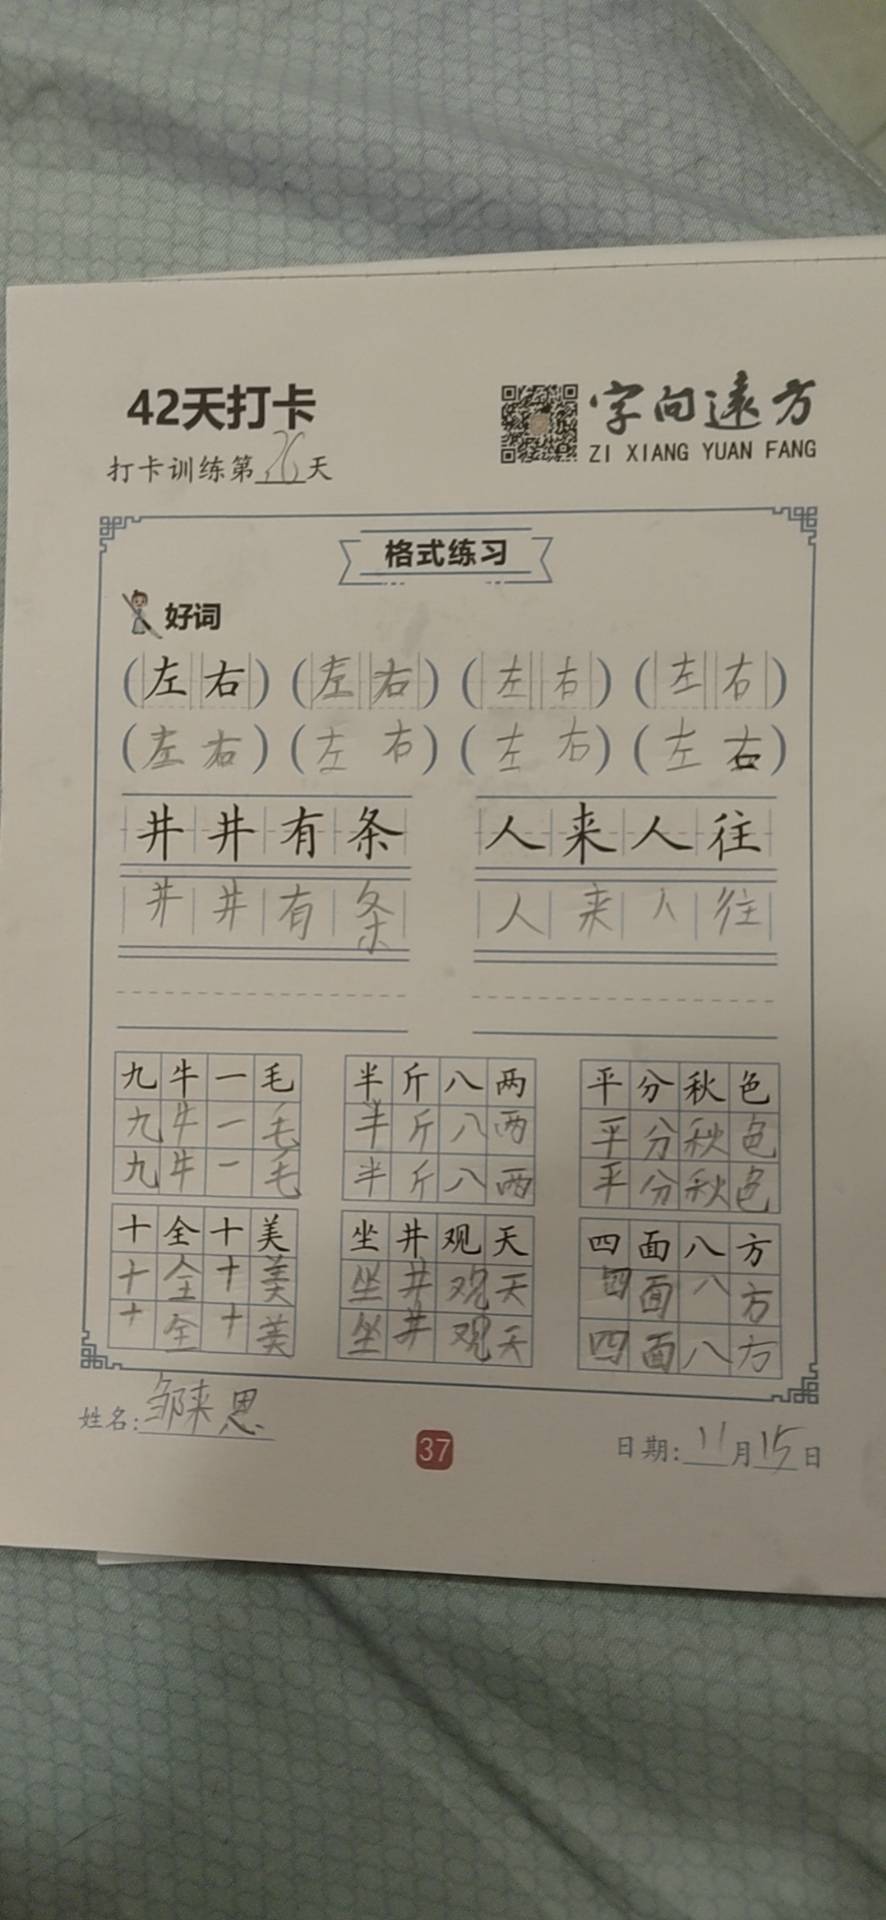 42天打卡
字向遠方
ZI XIANG YUAN FANG
打卡训练第26天
格式练习
好词
(左右)(左右)(左右)(左右)
(左右)(左右)(左右)(左右)
井井有条 人来人往
井井有条 人来人往
九牛一毛 半斤八两 平分秋色
九牛一毛 半斤八两 平分秋色
九牛一毛 半斤八两 平分秋色
十全十美 坐井观天 四面八方
十全十美 坐井观天 四面八方
十全十美 坐井观天 四面八方
姓名:邹来思
37
日期:11月15日